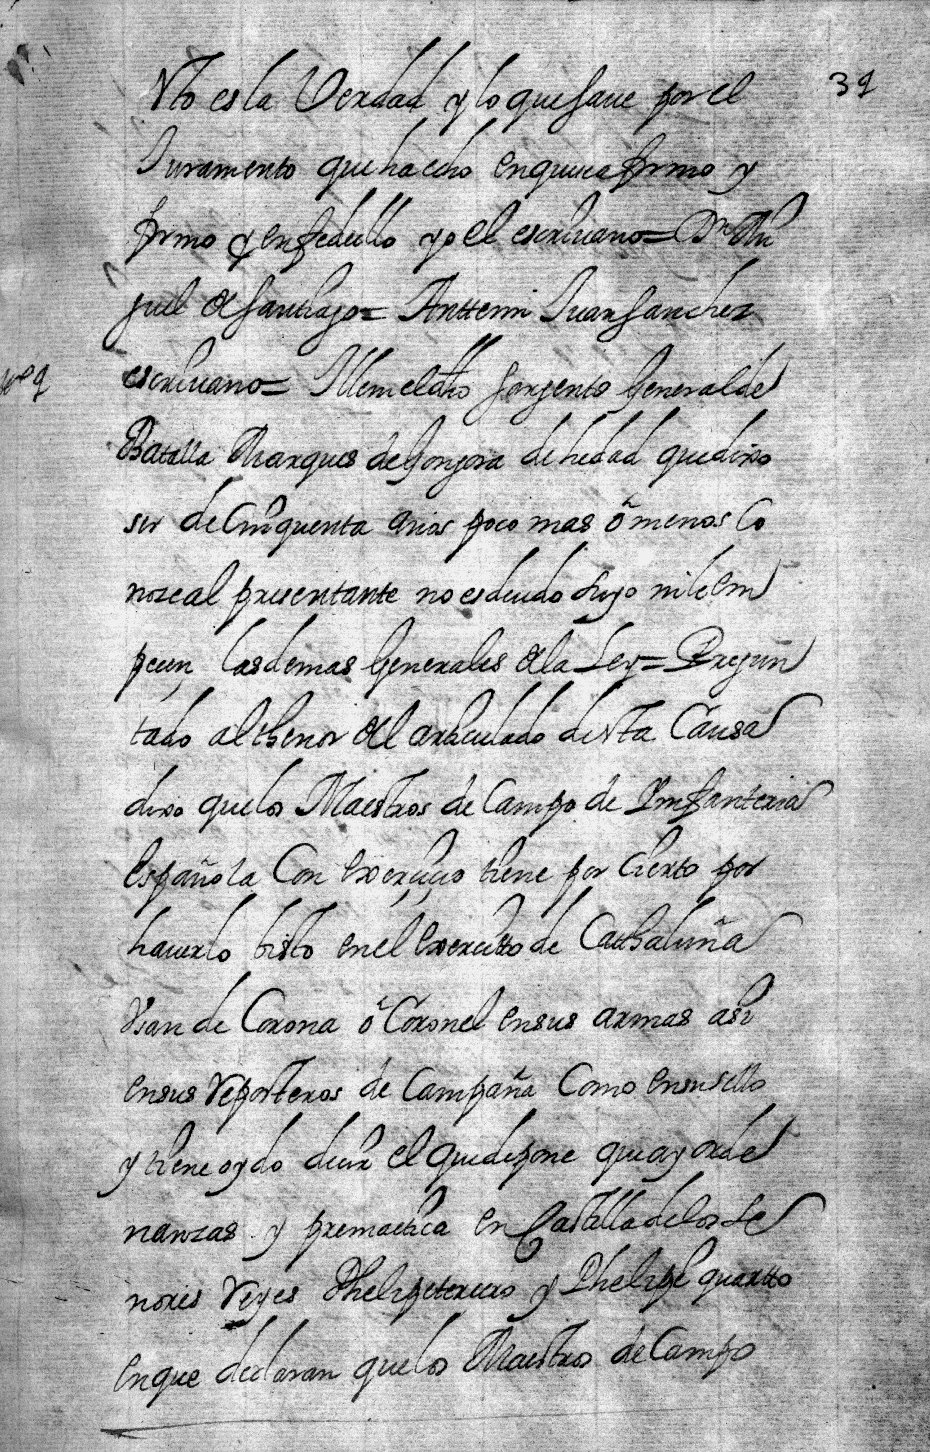 39
Vto es la Verdad y lo que save por el
Juramento que ha echo en que se afirmo y
firmo y en fe de ello yo el escrivano = Dn Mi
guel de Santiago = Anttemi Juan Sanchez
escrivano = Ittem el dho Sargento General de
Batalla Marques de Gongora de hedad que dixo
ser de Cinquenta años poco mas ô menos Co
noze al presentante no es deudo suyo ni le em
pecen las demas Generales de la Ley = Pregun
tado al thenor del articulado desta Causa
dixo que los Maestros de Campo de Ynfanteria
española Con exercicio tiene por Cierto por
haverlo bisto en el exercitto de Cathaluña
Vsan de Corona ô Coronel en sus armas asi
en sus Reposteros de Campaña Como en su sello
y tiene oydo decir el que depone que ay orde
nanzas y premactica en Castilla de los Se
nores Reyes Phelipe tercero y Phelipe quartto
en que declaran que los Maestros de Campo